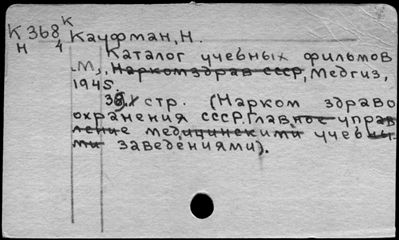 К 368 К Кауфман, Н.
Н 4
Каталог учебных фильмов
М., Наркомздрав СССР, Медгиз,
1945
39 стр. (Нарком здраво
охранения СССР. Главное управ
ление медицинскими учебны-
ми заведениями).